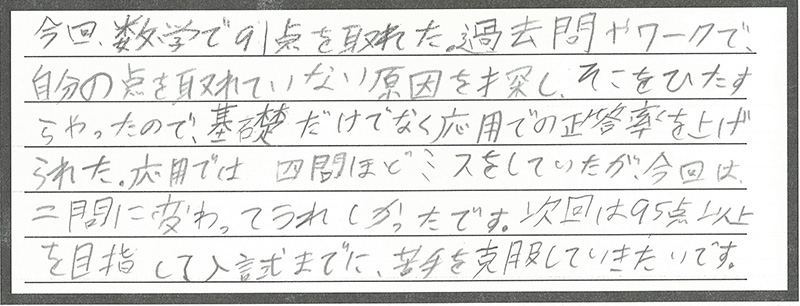 今回、数学で91点を取れた。過去問やワークで、
自分の点を取れていない原因を探し、そこをひたす
らやったので、基礎だけでなく応用での正答率を上げ
られた。応用では四問ほどミスをしていたが、今回は、
二問に変わってうれしかったです。次回は95点以上
を目指して入試までに、苦手を克服していきたいです。